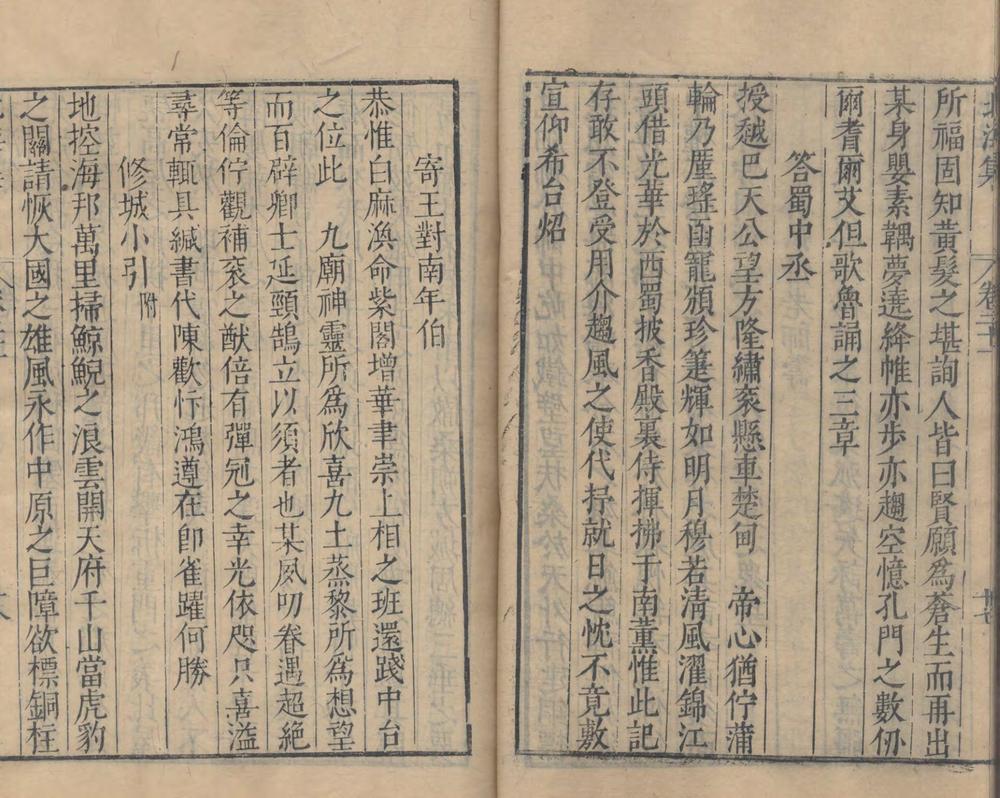 北海集 卷三十一
所福固知黃髮之堪詢人皆曰賢願為蒼生而再出
某身嬰素韝夢遶絳帷亦步亦趨空憶孔門之數仞
爾耆爾艾但歌魯誦之三章
答蜀中丞
授越巴天公望方隆繡衮懸車楚甸 帝心猶佇蒲
輪乃塵瑤函寵頒珍箑輝如明月穆若清風濯錦江
頭借光華於西蜀披香殿裏侍揮拂于南薰惟此記
存敢不登受用介趨風之使代抒就日之忱不竟敷
宣仰希台炤
寄王對南年伯
恭惟白麻渙命紫閣增華聿崇上相之班還踐中台
之位此 九廟神靈所為欣喜九土蒸黎所為想望
而百辟卿士延頸鵠立以須者也某夙叨眷遇超絕
等倫佇觀補衮之猷倍有彈冠之幸光依咫只喜溢
尋常輒具緘書代陳歡忭鴻遵在即雀躍何勝
修城小引 附
地控海邦萬里掃鯨鯢之浪雲開天府千山當虎豹
之關請恢大國之雄風永作中原之巨障欲標銅柱